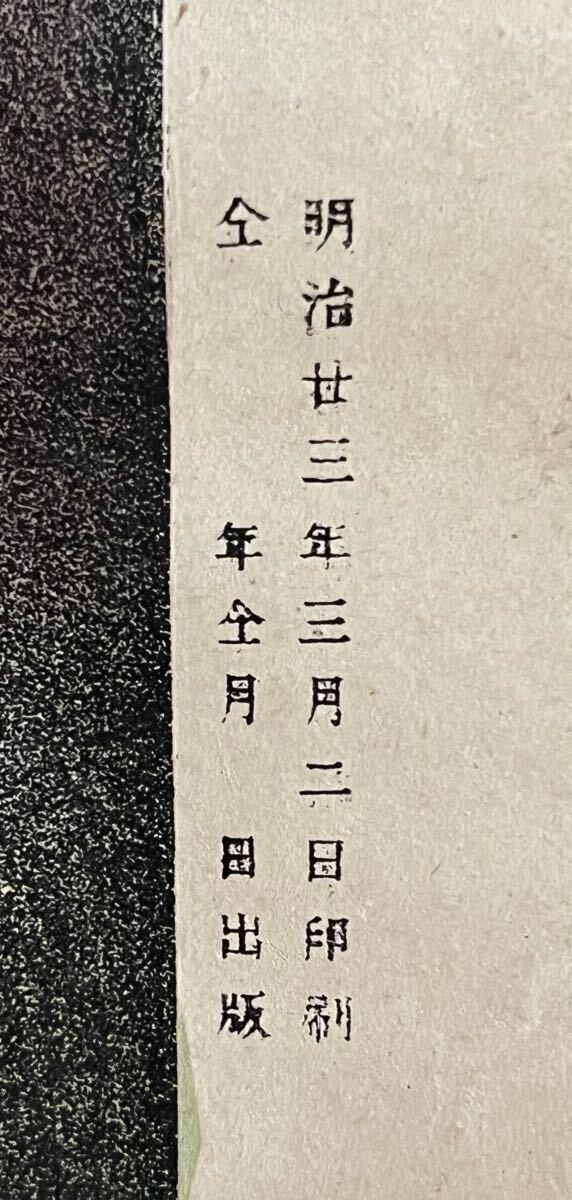 明治廿三年三月二日印刷
仝年仝月 日出版